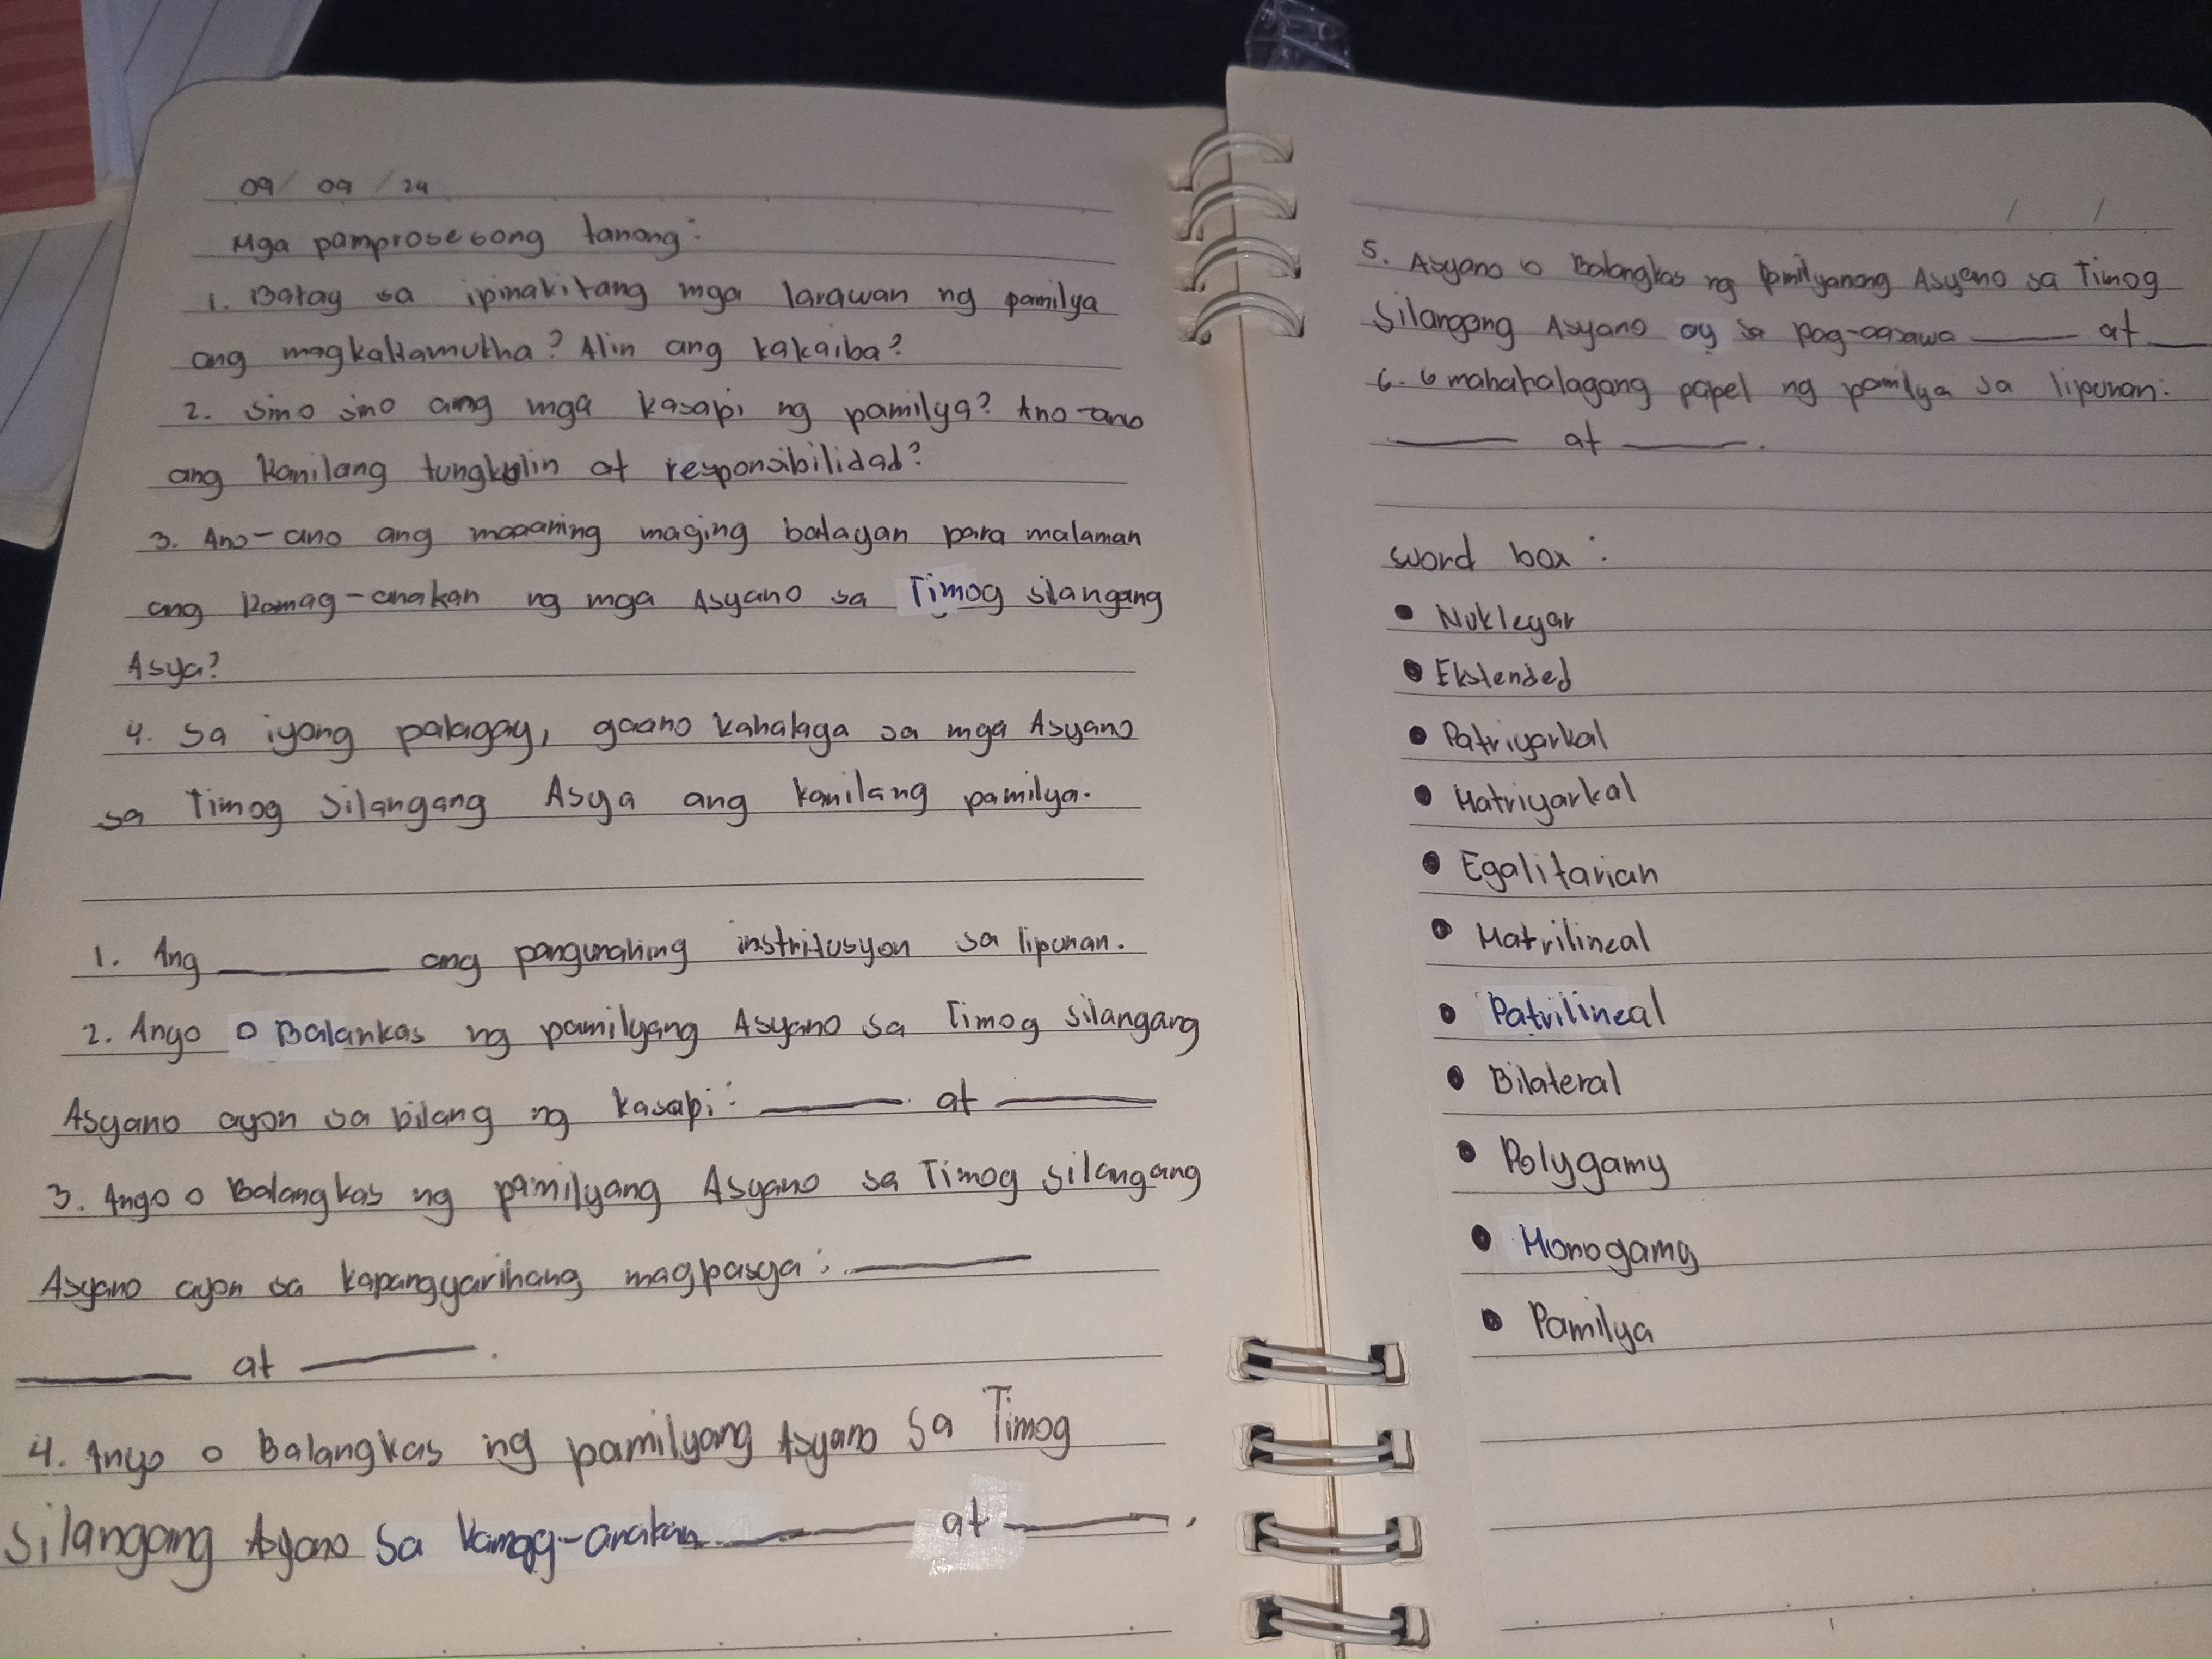 09/ 09 /24
Mga pamprosesong tanong:
1. Batay sa ipinakitang mga larawan ng pamilya
ang magkakamukha? Alin ang kakaiba?
2. Sino sino ang mga kasapi ng pamilya? Ano-ano
ang kanilang tungkulin at responsibilidad?
3. Ano-ano ang maaaring maging batayan para malaman
ang kamag-anakan ng mga Asyano sa Timog silangang
Asya?
4. Sa iyong palagay, gaano kahalaga sa mga Asyano
sa Timog Silangang Asya ang kanilang pamilya.
1. Ang ______ ang pangunahing institusyon sa lipunan.
2. Anyo o Balankas ng pamilyang Asyano sa Timog silangang
Asyano ayon sa bilang ng kasapi: ______ at ______
3. Anyo o Balangkas ng pamilyang Asyano sa Timog silangang
Asyano ayon sa kapangyarihang magpasya: ______
______ at ______.
4. Anyo o Balangkas ng pamilyang Asyano sa Timog
Silangang Asyano sa kamag-anakan ______ at ______.
/ /
5. Asyano o Balangkas ng Asyano sa Timog
Silangang Asyano ay sa pag-aasawa ______ at ___
6. 6 mahahalagang papel ng pamilya sa lipunan:
______ at ______.
word box:
• Nukleyar
• Ekstended
• Patriyarkal
• Matriyarkal
• Egalitarian
• Matrilineal
• Patrilineal
• Bilateral
• Polygamy
• Monogamy
• Pamilya